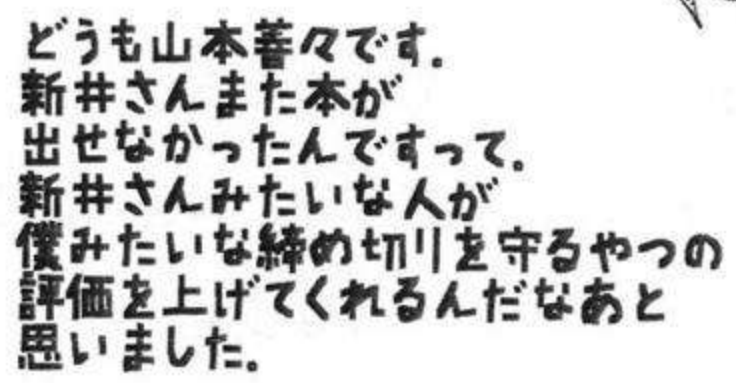 どうも山本善々です.
新井さんまた本が
出せなかったんですって.
新井さんみたいな人が
僕みたいな締め切りを守るやつの
評価を上げてくれるんだなあと
思いました。